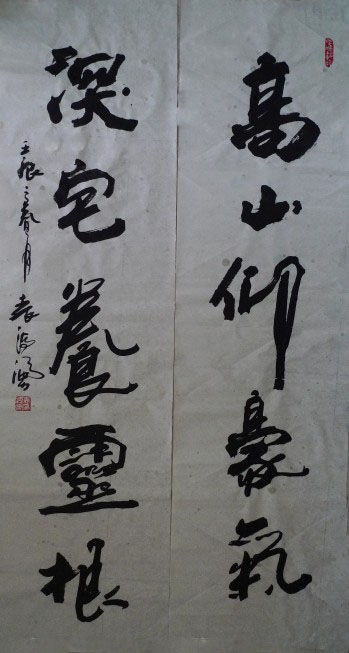 高山仰豪氣
深宅養靈根
壬辰之春月